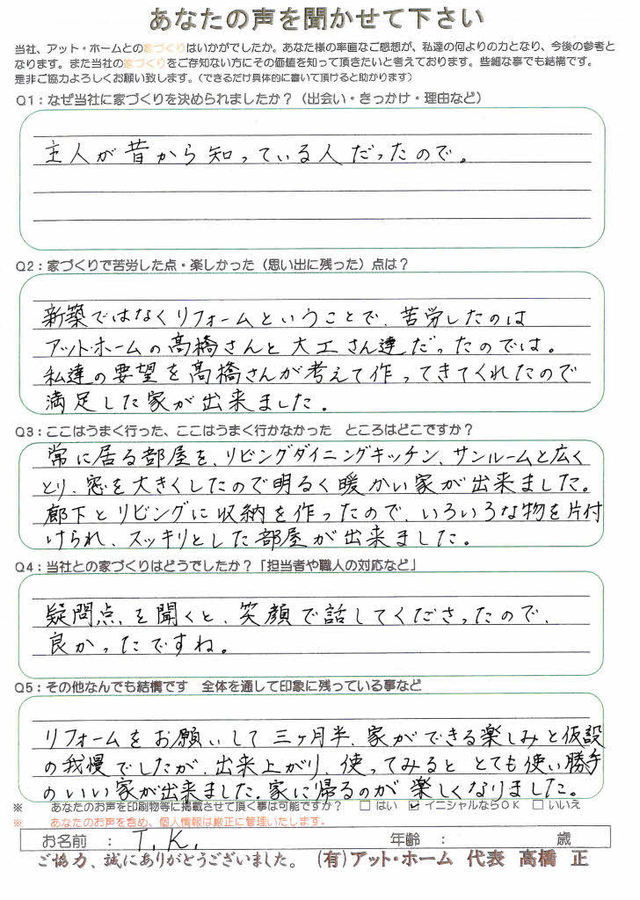 あなたの声を聞かせて下さい
当社、アット・ホームとの家づくりはいかがでしたか。あなた様の率直なご感想が、私達の何よりの力となり、今後の参考と
なります。また当社の家づくりをご存知ない方にその価値を知って頂きたいと考えております。些細な事でも結構です。
是非ご協力よろしくお願い致します。（できるだけ具体的に書いて頂けると助かります）
Q1：なぜ当社に家づくりを決められましたか？（出会い・きっかけ・理由など）
主人が昔から知っている人だったので。
Q2：家づくりで苦労した点・楽しかった（思い出に残った）点は？
新築ではなくリフォームということで、苦労したのは
アットホームの高橋さんと大工さん達だったのでは。
私達の要望を高橋さんが考えて作ってきてくれたので
満足した家が出来ました。
Q3：ここはうまく行った、ここはうまく行かなかった　ところはどこですか？
常に居る部屋を、リビングダイニングキッチン、サンルームと広く
とり、窓を大きくしたので明るく暖かい家が出来ました。
廊下とリビングに収納を作ったので、いろいろな物を片付
けられ、スッキリとした部屋が出来ました。
Q4：当社との家づくりはどうでしたか？「担当者や職人の対応など」
疑問点を聞くと、笑顔で話してくださったので、
良かったですね。
Q5：その他なんでも結構です　全体を通して印象に残っている事など
リフォームをお願いして三ヶ月半、家ができる楽しみと仮設
の我慢でしたが、出来上がり、使ってみるととても使い勝手
のいい家が出来ました。家に帰るのが楽しくなりました。
※　あなたのお声を印刷物等に掲載させて頂く事は可能ですか？　□はい　☑イニシャルならOK　□いいえ
※　あなたのお声を含め、個人情報は厳正に管理いたします。
お名前：T.K.　年齢：　歳
ご協力、誠にありがとうございました。（有）アット・ホーム　代表　高橋　正